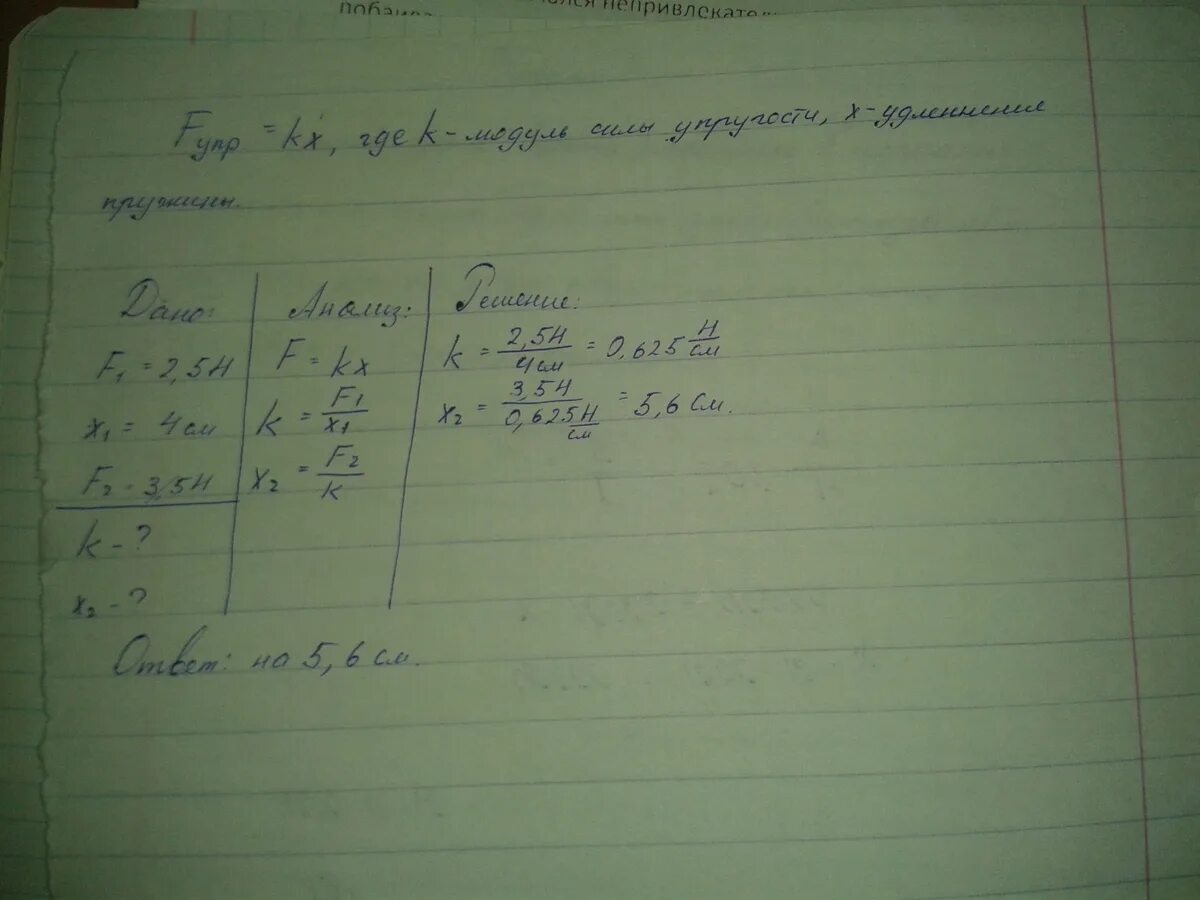 непривлекател
Fупр = kx, где k - модуль силы упругости, х - удлиннение
пружины.
Дано:
F₁ = 2,5Н
x₁ = 4см
F₂ = 3,5Н
k - ?
x₂ - ?
Анализ:
F = kx
k = F₁/x₁
x₂ = F₂/k
Решение:
k = 2,5Н/4см = 0,625 Н/см
x₂ = 3,5Н/0,625 Н/см = 5,6 см.
Ответ: на 5,6 см.